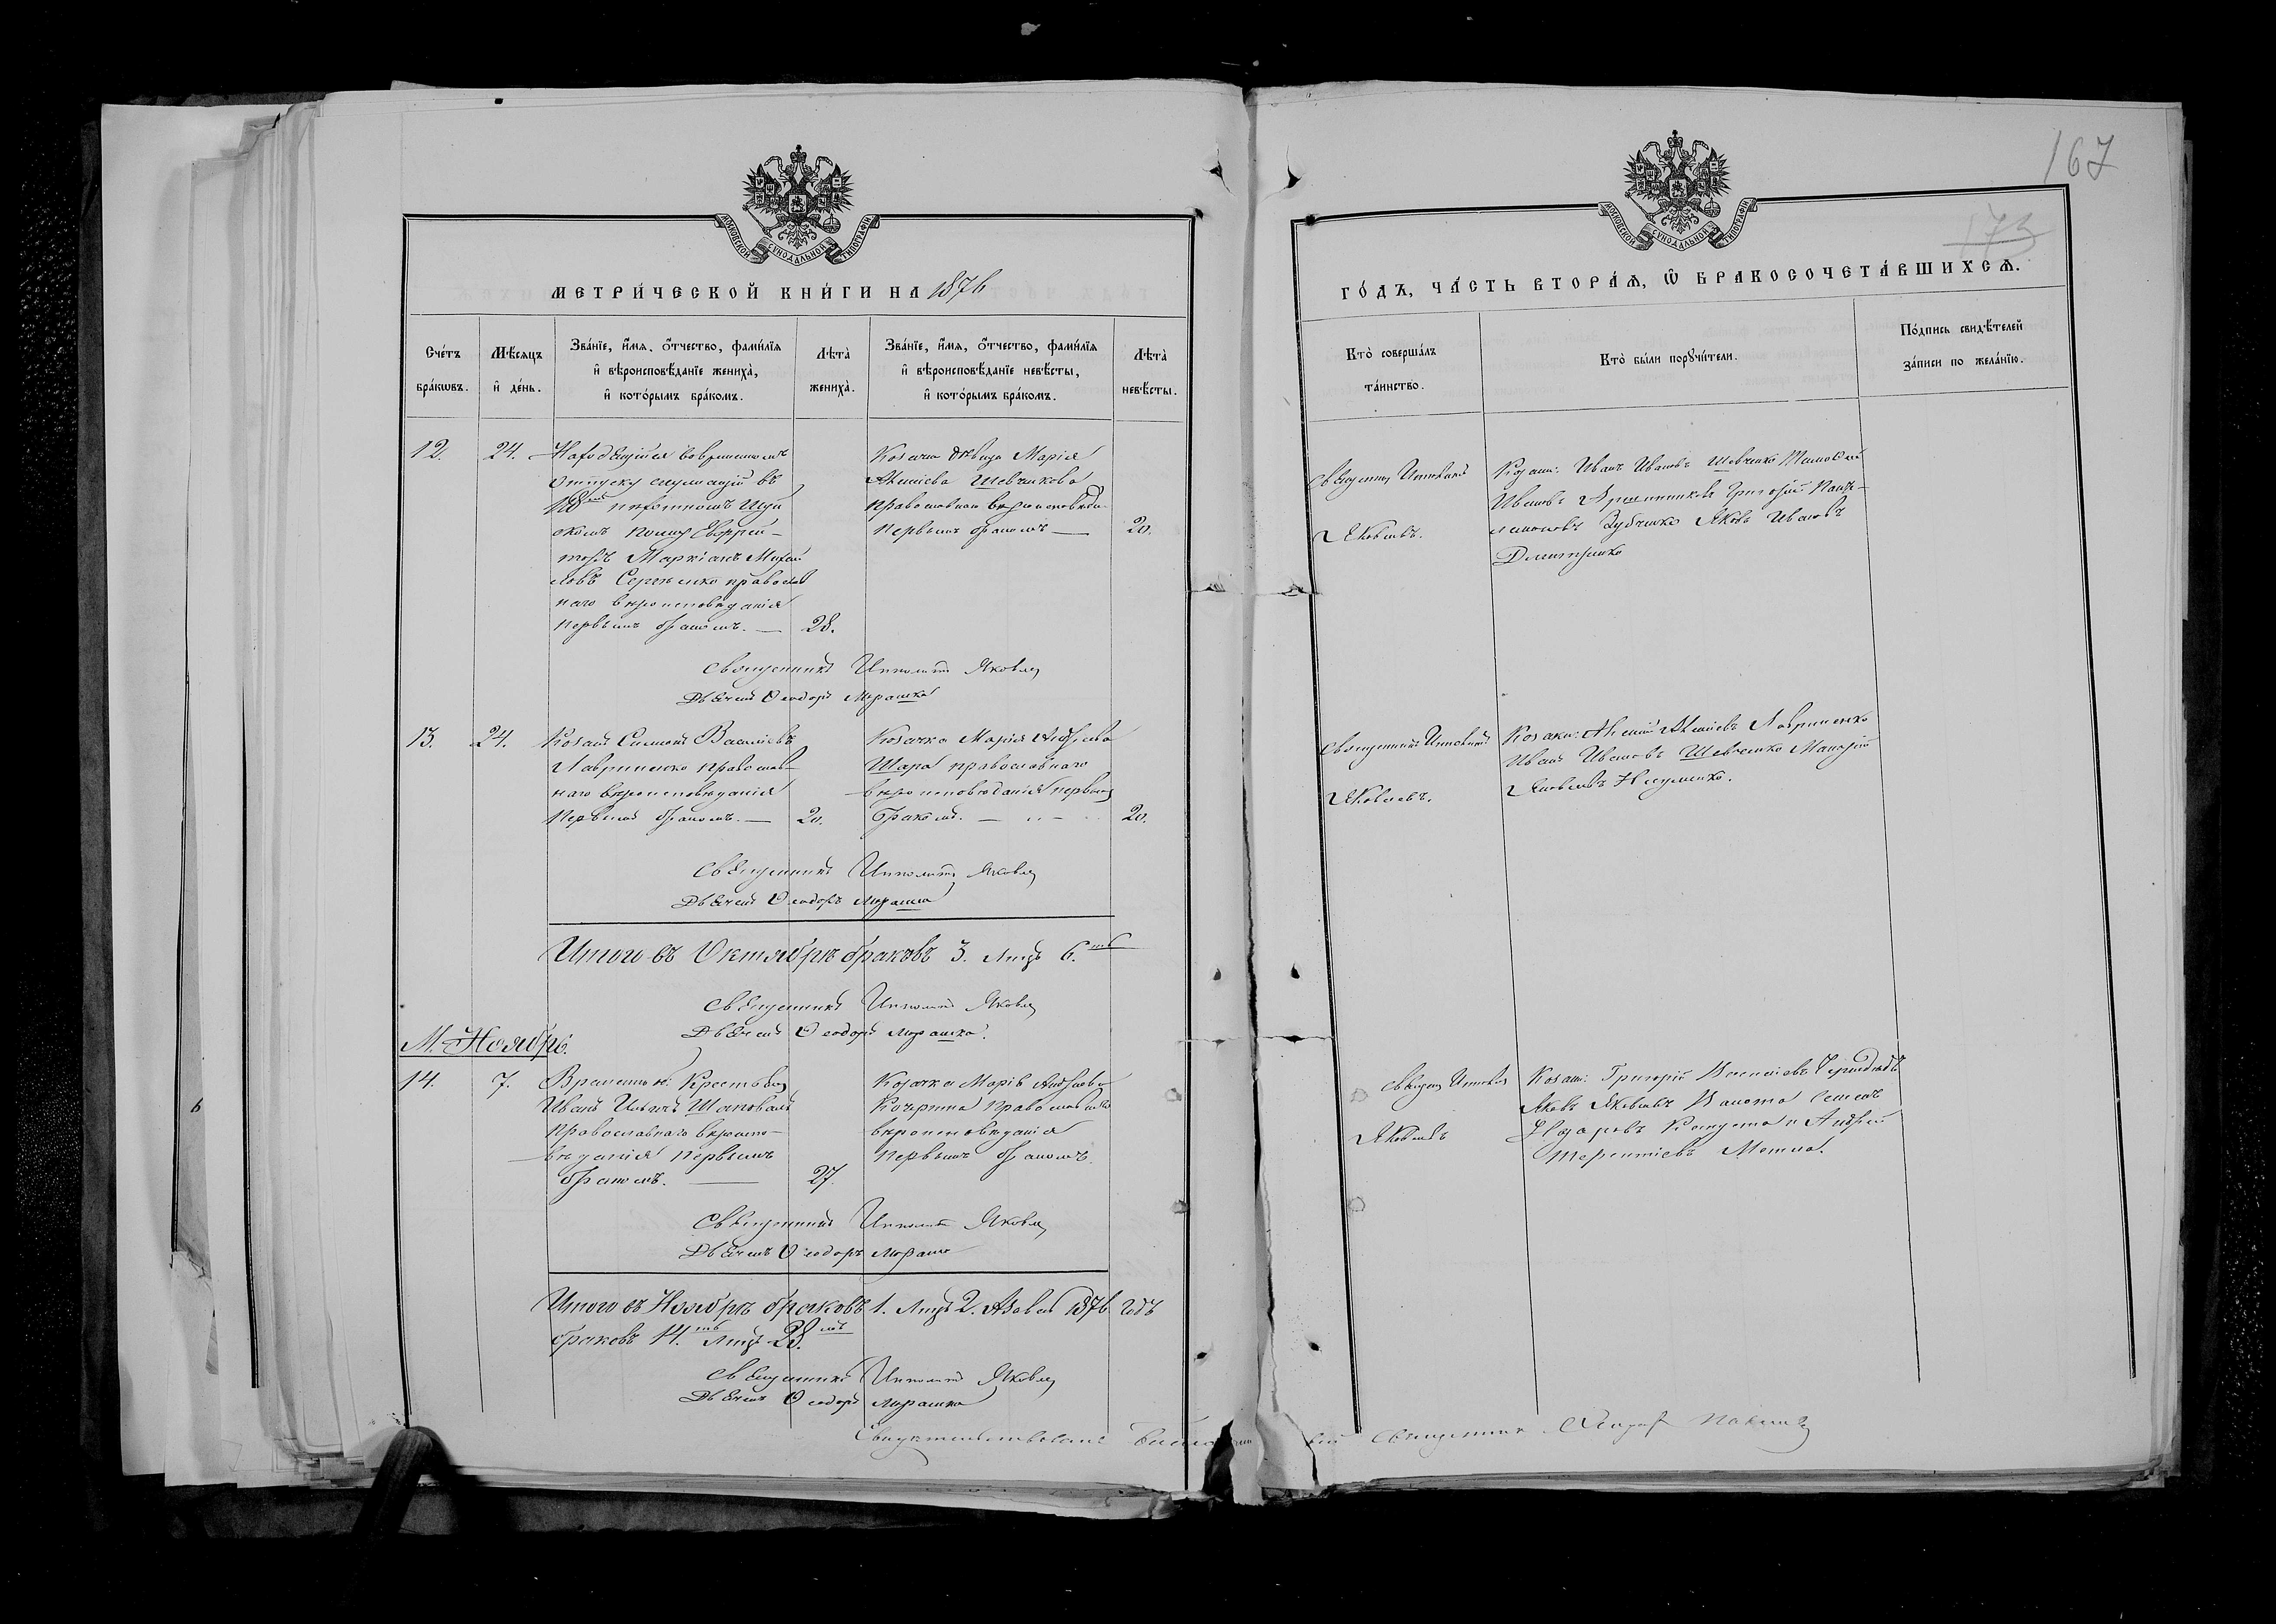 МОСКОВСКОЙ СУНОДАЛЬНОЙ ТИПОГРАФІИ
МЕТРИ́ЧЕСКОЙ КНИ́ГИ НА 1876
Сче́тъ бра́кωвъ.
Мѣ́сяцъ и҆ де́нь.
Зва́нїе, и҆́мя, ѻ҆́тчество, фами́лїя
и҆ вѣроисповѣ́данїе жениха̀,
и҆ кото́рымъ бра́комъ.
Лѣта̀
жениха̀.
Зва́нїе, и҆́мя, ѻ҆́тчество, фами́лїя
и҆ вѣроисповѣ́данїе невѣ́сты,
и҆ кото́рымъ бра́комъ.
Лѣта̀
невѣ́сты.
12. 24.
Находящійся во временномъ
отпуску служащій въ
118 пѣхотномъ Шуй
скомъ полку Ефрей-
торъ Маркіанъ Михай
ловъ Сергѣенко православ
наго вѣроисповѣданія
первымъ бракомъ. — 28.
Козачка дѣвица Марія
Шевченкова
православнаго вѣроисповѣданія
первымъ бракомъ — 20.
Священникъ Ипполитъ Яковлевъ
Дьячекъ Ѳеодоръ Мурашко
13. 24.
Козакъ Симеонъ Василіевъ
Лавриненко православ-
наго вѣроисповѣданія
первымъ бракомъ. — 20.
Козачка Марія
Шара православнаго
вѣроисповѣданія первымъ
бракомъ. — 20.
Священникъ Ипполитъ Яковлевъ
Дьячекъ Ѳеодоръ Мурашко
Итого въ Октябрѣ браковъ 3. Лицъ 6.ть
Священникъ Ипполитъ Яковлевъ
Дьячекъ Ѳеодоръ Мурашко.
М. Ноябрь.
14. 7.
Временно об. Крестьянинъ
Иванъ Шаповалъ
православнаго вѣроиспо-
вѣданія первымъ
бракомъ. — 27.
Козачка Марія Андреева
Кочерина православнаго
вѣроисповѣданія
первымъ бракомъ.
Священникъ Ипполитъ Яковлевъ
Дьячекъ Ѳеодоръ Мурашко
Итого въ Ноябрѣ браковъ 1. Лицъ 2. А всего 1876 годъ
браковъ 14.ть Лицъ 28.мь
Священникъ Ипполитъ Яковлевъ
Дьячекъ Ѳеодоръ Мурашко
Свидѣтельствовалъ
167
173
МОСКОВСКОЙ СУНОДАЛЬНОЙ ТИПОГРАФІИ
ГО́ДЪ, ЧА́СТЬ ВТОРА́Я, Ѡ҆ БРАКОСОЧЕТА́ВШИХСЯ.
Кто̀ соверша́лъ
та́инство.
Кто̀ бы́ли порꙋчи́тели.
По́дпись свидѣ́телей
за́писи по жела́нїю.
Священникъ Ипполитъ
Яковлевъ.
Козаки: Иванъ Ивановъ Шевченко Тимофей
Ивановъ Григорій Пант-
елеимоновъ Зубченко Яковъ Ивановъ
Дмитренко
Священникъ Ипполитъ
Яковлевъ.
Козаки: Лавриненко
Иванъ Ивановъ Шевченко
Яковлевъ Науменко.
Священ Ипполитъ
Яковлевъ
Козаки: Григорій Василіевъ
Яковъ Яковлевъ Семенъ
Назаровъ Капуста и Андрей
Терентіевъ
священникъ